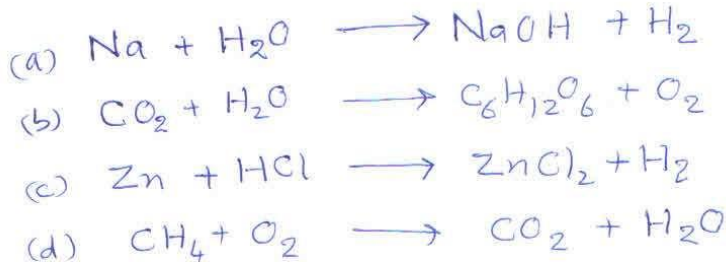 (a) Na + H₂O ⟶ NaOH + H₂
(b) CO₂ + H₂O ⟶ C₆H₁₂O₆ + O₂
(c) Zn + HCl ⟶ ZnCl₂ + H₂
(d) CH₄ + O₂ ⟶ CO₂ + H₂O